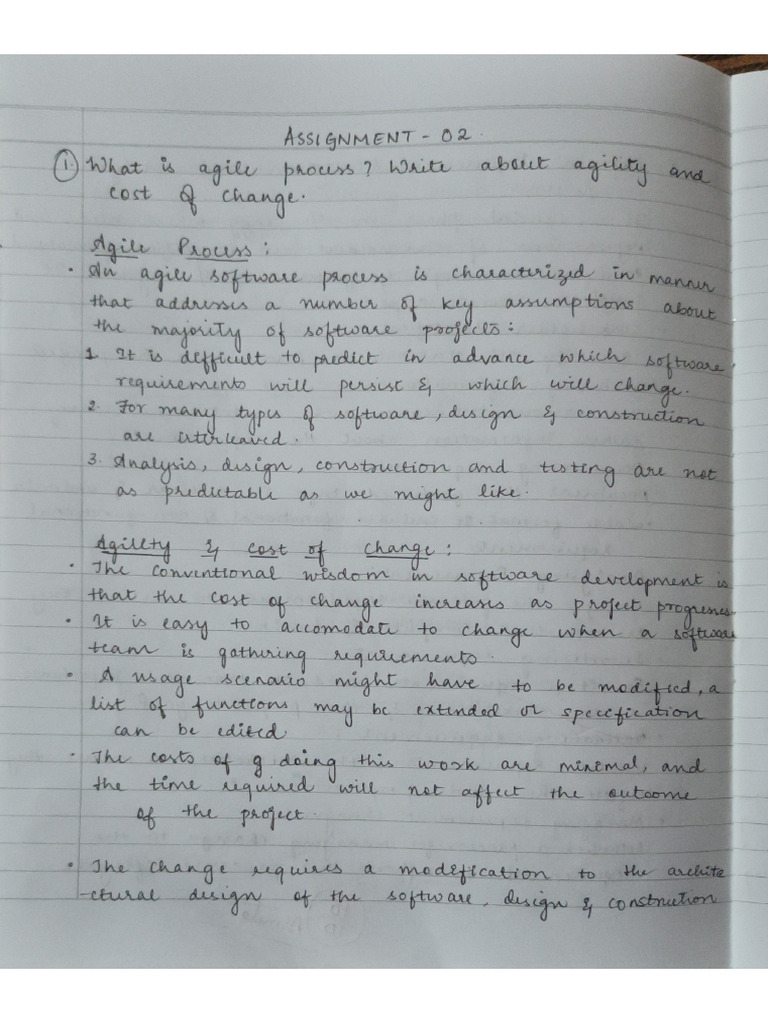 ASSIGNMENT - 02.
1. What is agile process? Write about agility and
cost of change.
Agile Process:
• An agile software process is characterized in manner
that addresses a number of key assumptions about
the majority of software projects:
1. It is defficult to predict in advance which software
requirements will persist & which will change.
2. For many types of software, design & construction
are interleaved.
3. Analysis, design, construction and testing are not
as predictable as we might like.
Agility & cost of change:
• The conventional wisdom in software development is
that the cost of change increases as project progresses.
• It is easy to accomodate to change when a software
team is gathering requirements.
• A usage scenario might have to be modified, a
list of functions may be extended or specification
can be edited
• The costs of g doing this work are minimal, and
the time required will not affect the outcome
of the project.
• The change requires a modification to the archite
-ctural design of the software, design & construction